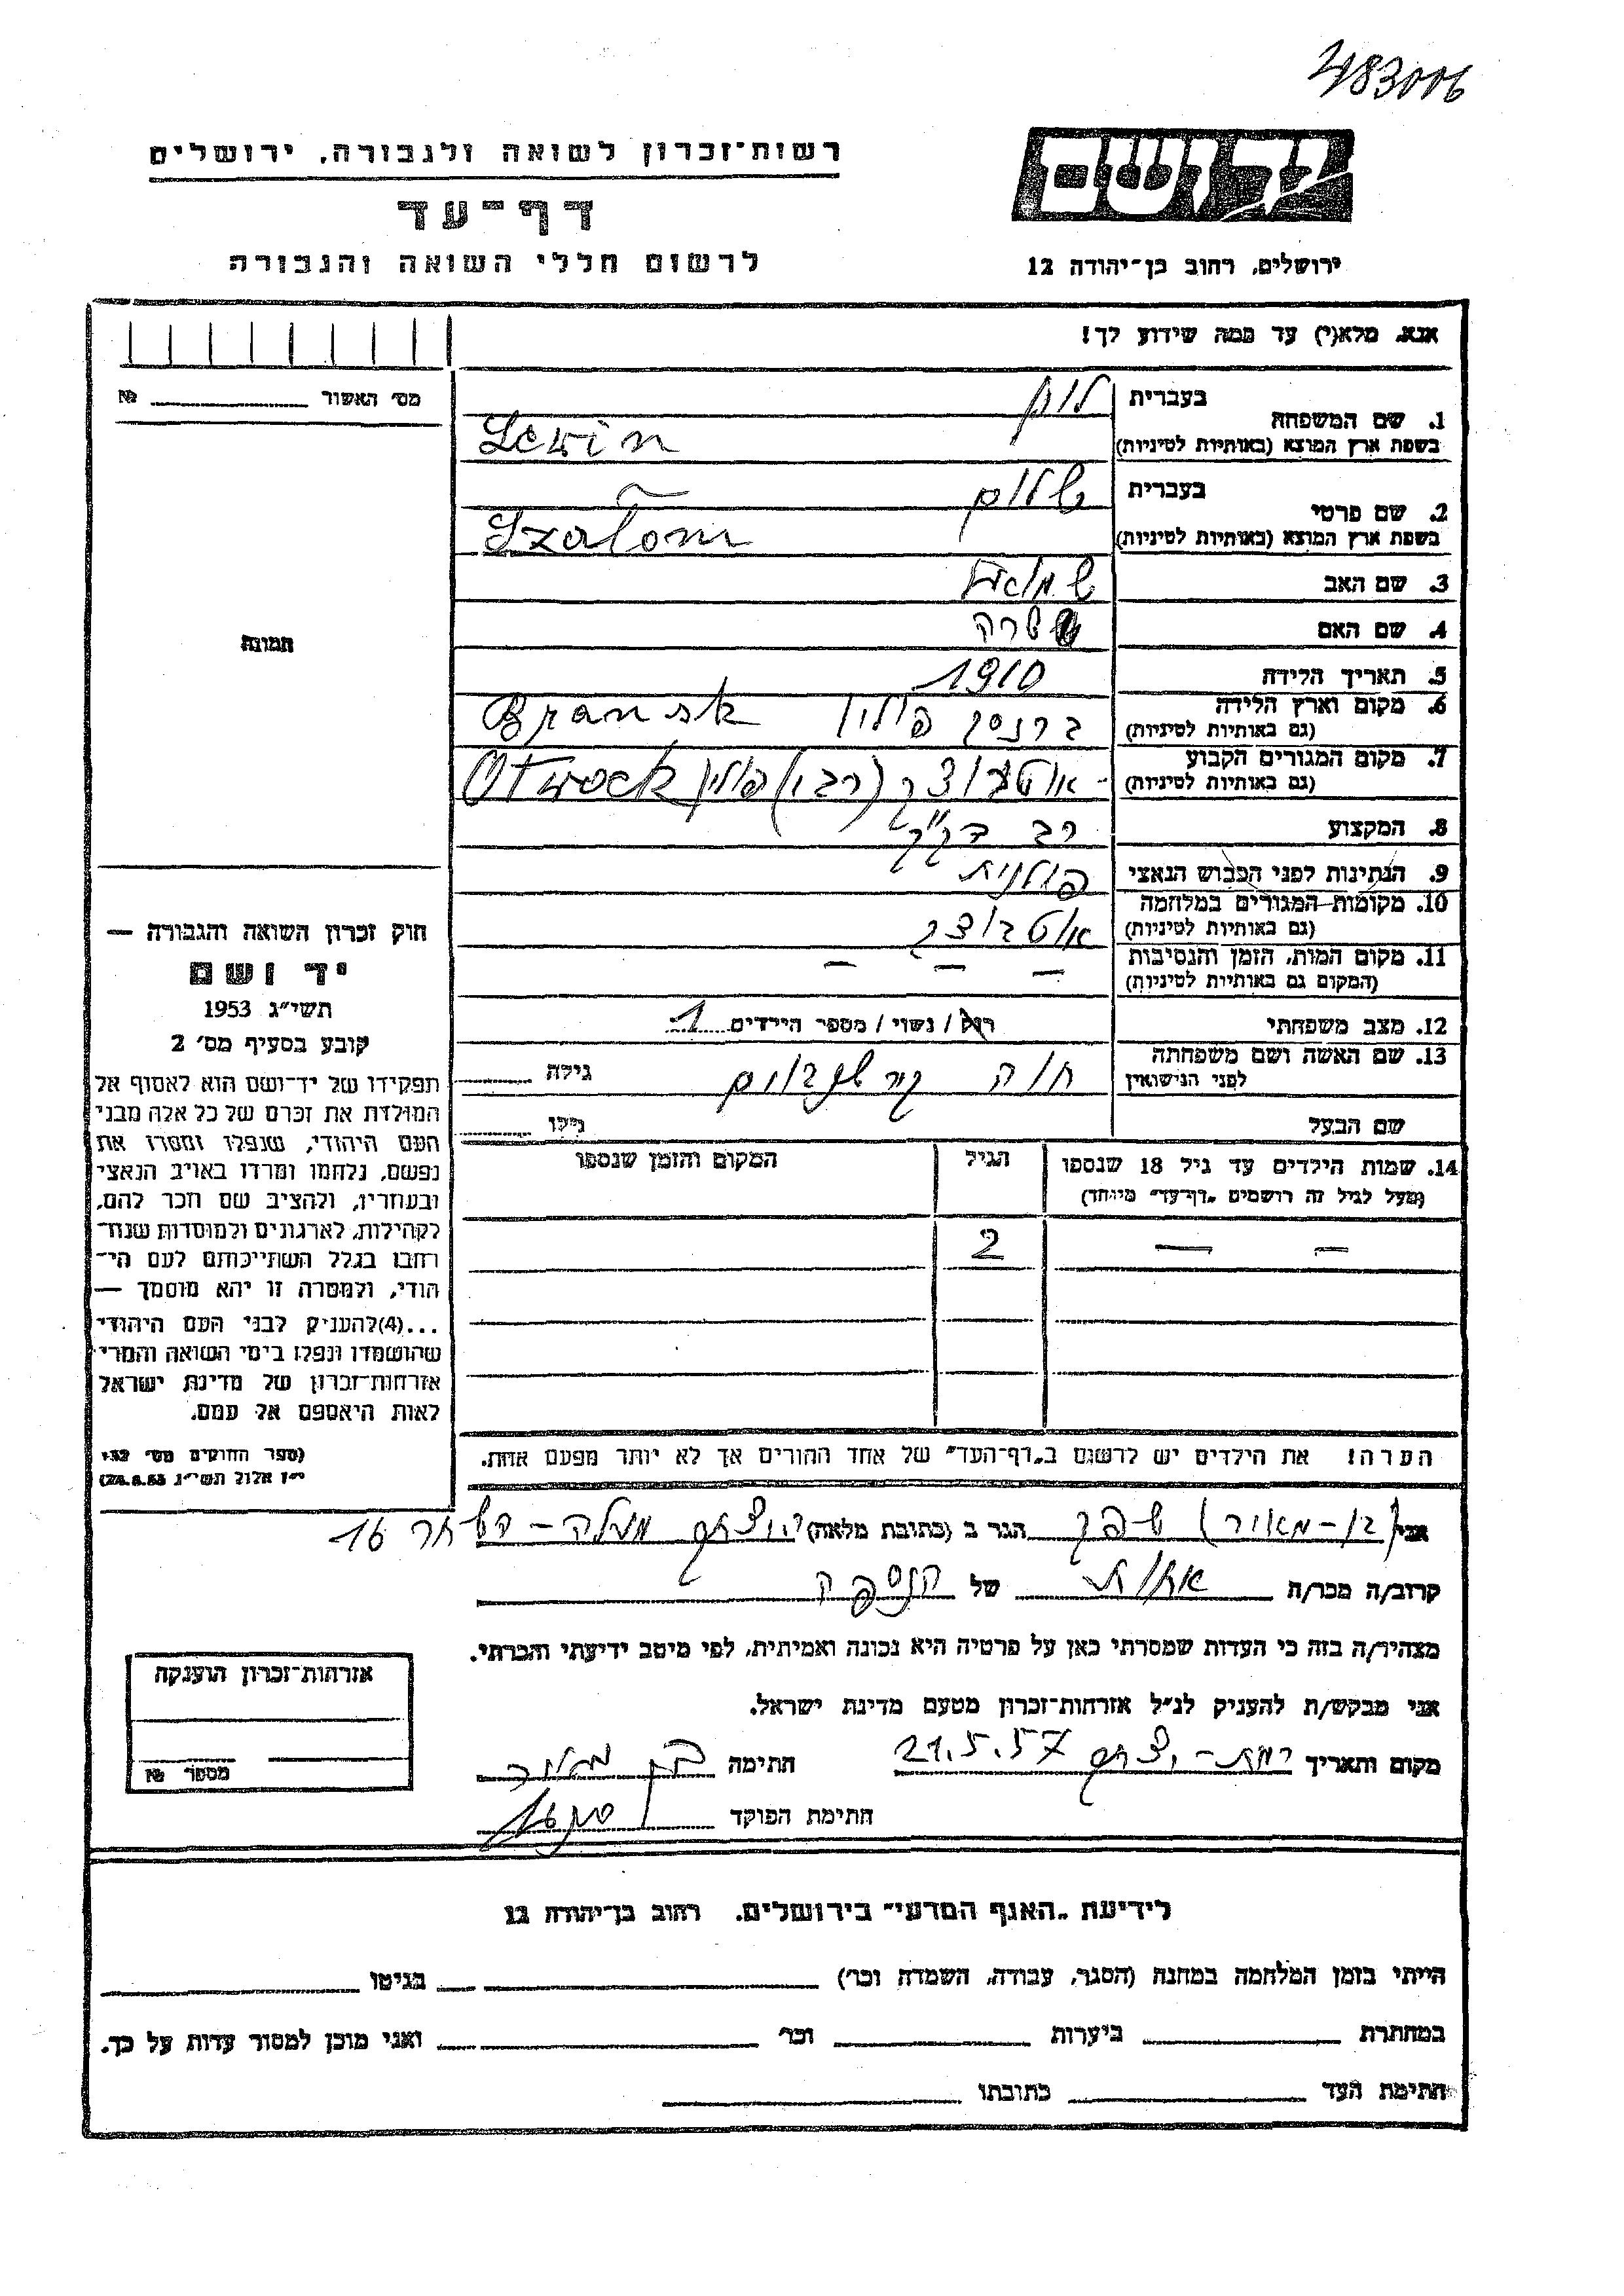 483006
רשות־זכרון לשואה ולגבורה, ירושלים
דף־עד
לרשום חללי השואה והגבורה
יד ושם
ירושלים, רחוב בן־יהודה 12
אנא, מלא(י) עד כמה שידוע לך!
מס׳ האשור № 
1. שם המשפחה בעברית לוין
בשפת ארץ המוצא (באותיות לטיניות) Lewin
2. שם פרטי בעברית שלום
בשפת ארץ המוצא (באותיות לטיניות) Szalom
3. שם האב
4. שם האם שרה
5. תאריך הלידה 1910
6. מקום וארץ הלידה (גם באותיות לטיניות) ברנסק פולין Bransk
7. מקום המגורים הקבוע (גם באותיות לטיניות) פולין Otwock
8. המקצוע רב בק״ק
9. הנתינות לפני הכבוש הנאצי פולנית
10. מקומות המגורים במלחמה (גם באותיות לטיניות) אוטבוצק
11. מקום המות, הזמן והנסיבות (המקום גם באותיות לטיניות) — — —
12. מצב משפחתי רוק / נשוי / מספר הילדים 1
13. שם האשה ושם משפחתה לפני הנישואין חוה גילה
שם הבעל גילו
14. שמות הילדים עד גיל 18 שנספו (מעל לגיל זה רושמים „דף־עד״ מיוחד) הגיל המקום והזמן שנספו
— — 2
הערה! את הילדים יש לרשום ב„דף־העד״ של אחד ההורים אך לא יותר מפעם אחת.
תמונה
חוק זכרון השואה והגבורה —
יד ושם
תשי״ג 1953
קובע בסעיף מס׳ 2
תפקידו של יד־ושם הוא לאסוף אל
המולדת את זכרם של כל אלה מבני
העם היהודי, שנפלו ומסרו את
נפשם, נלחמו ומרדו באויב הנאצי
ובעוזריו, ולהציב שם וזכר להם,
לקהילות, לארגונים ולמוסדות שנח־
רבו בגלל השתייכותם לעם הי־
הודי, ולמטרה זו יהא מוסמך —
...(4) להעניק לבני העם היהודי
שהושמדו ונפלו בימי השואה והמרי
אזרחות־זכרון של מדינת ישראל
לאות היאספם אל עמם.
(ספר החוקים מס׳ 132,
י״ז אלול תשי״ג 28.8.53)
אני (בן-מאור) הגר ב (כתובת מלאה) 16
קרוב/ה מכר/ה אחות של הנספה
מצהיר/ה בזה כי העדות שמסרתי כאן על פרטיה היא נכונה ואמיתית, לפי מיטב ידיעתי והכרתי.
אני מבקש/ת להעניק לנ״ל אזרחות־זכרון מטעם מדינת ישראל.
מקום ותאריך 21.5.57 חתימה
חתימת הפוקד
אזרחות־זכרון הוענקה
מספר №
לידיעת „האגף המדעי״ בירושלים, רחוב בן־יהודה 12
הייתי בזמן המלחמה במחנה (הסגר, עבודה, השמדה וכו׳) בגיטו
במחתרת ביערות וכו׳ ואני מוכן למסור עדות על כך.
חתימת העד כתובתו